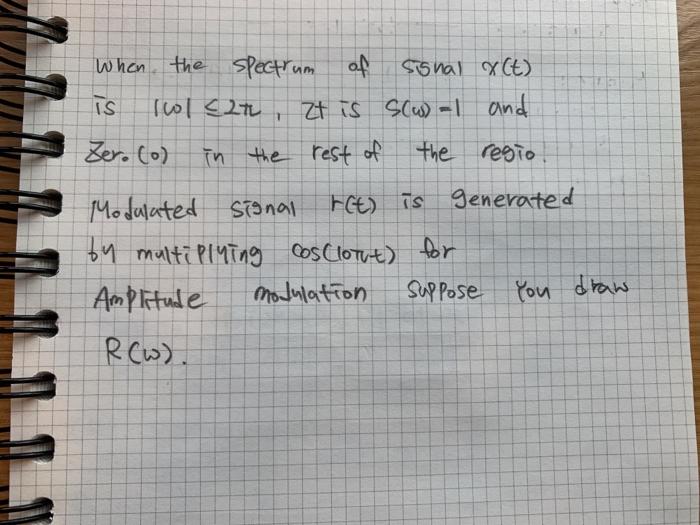 When the spectrum of signal x(t)
is |ω| ≤ 2π, It is S(ω) = 1 and
Zero (0) in the rest of the regio.
Modulated signal r(t) is generated
by multiplying cos(10πt) for
Amplitude modulation suppose you draw
R(ω).